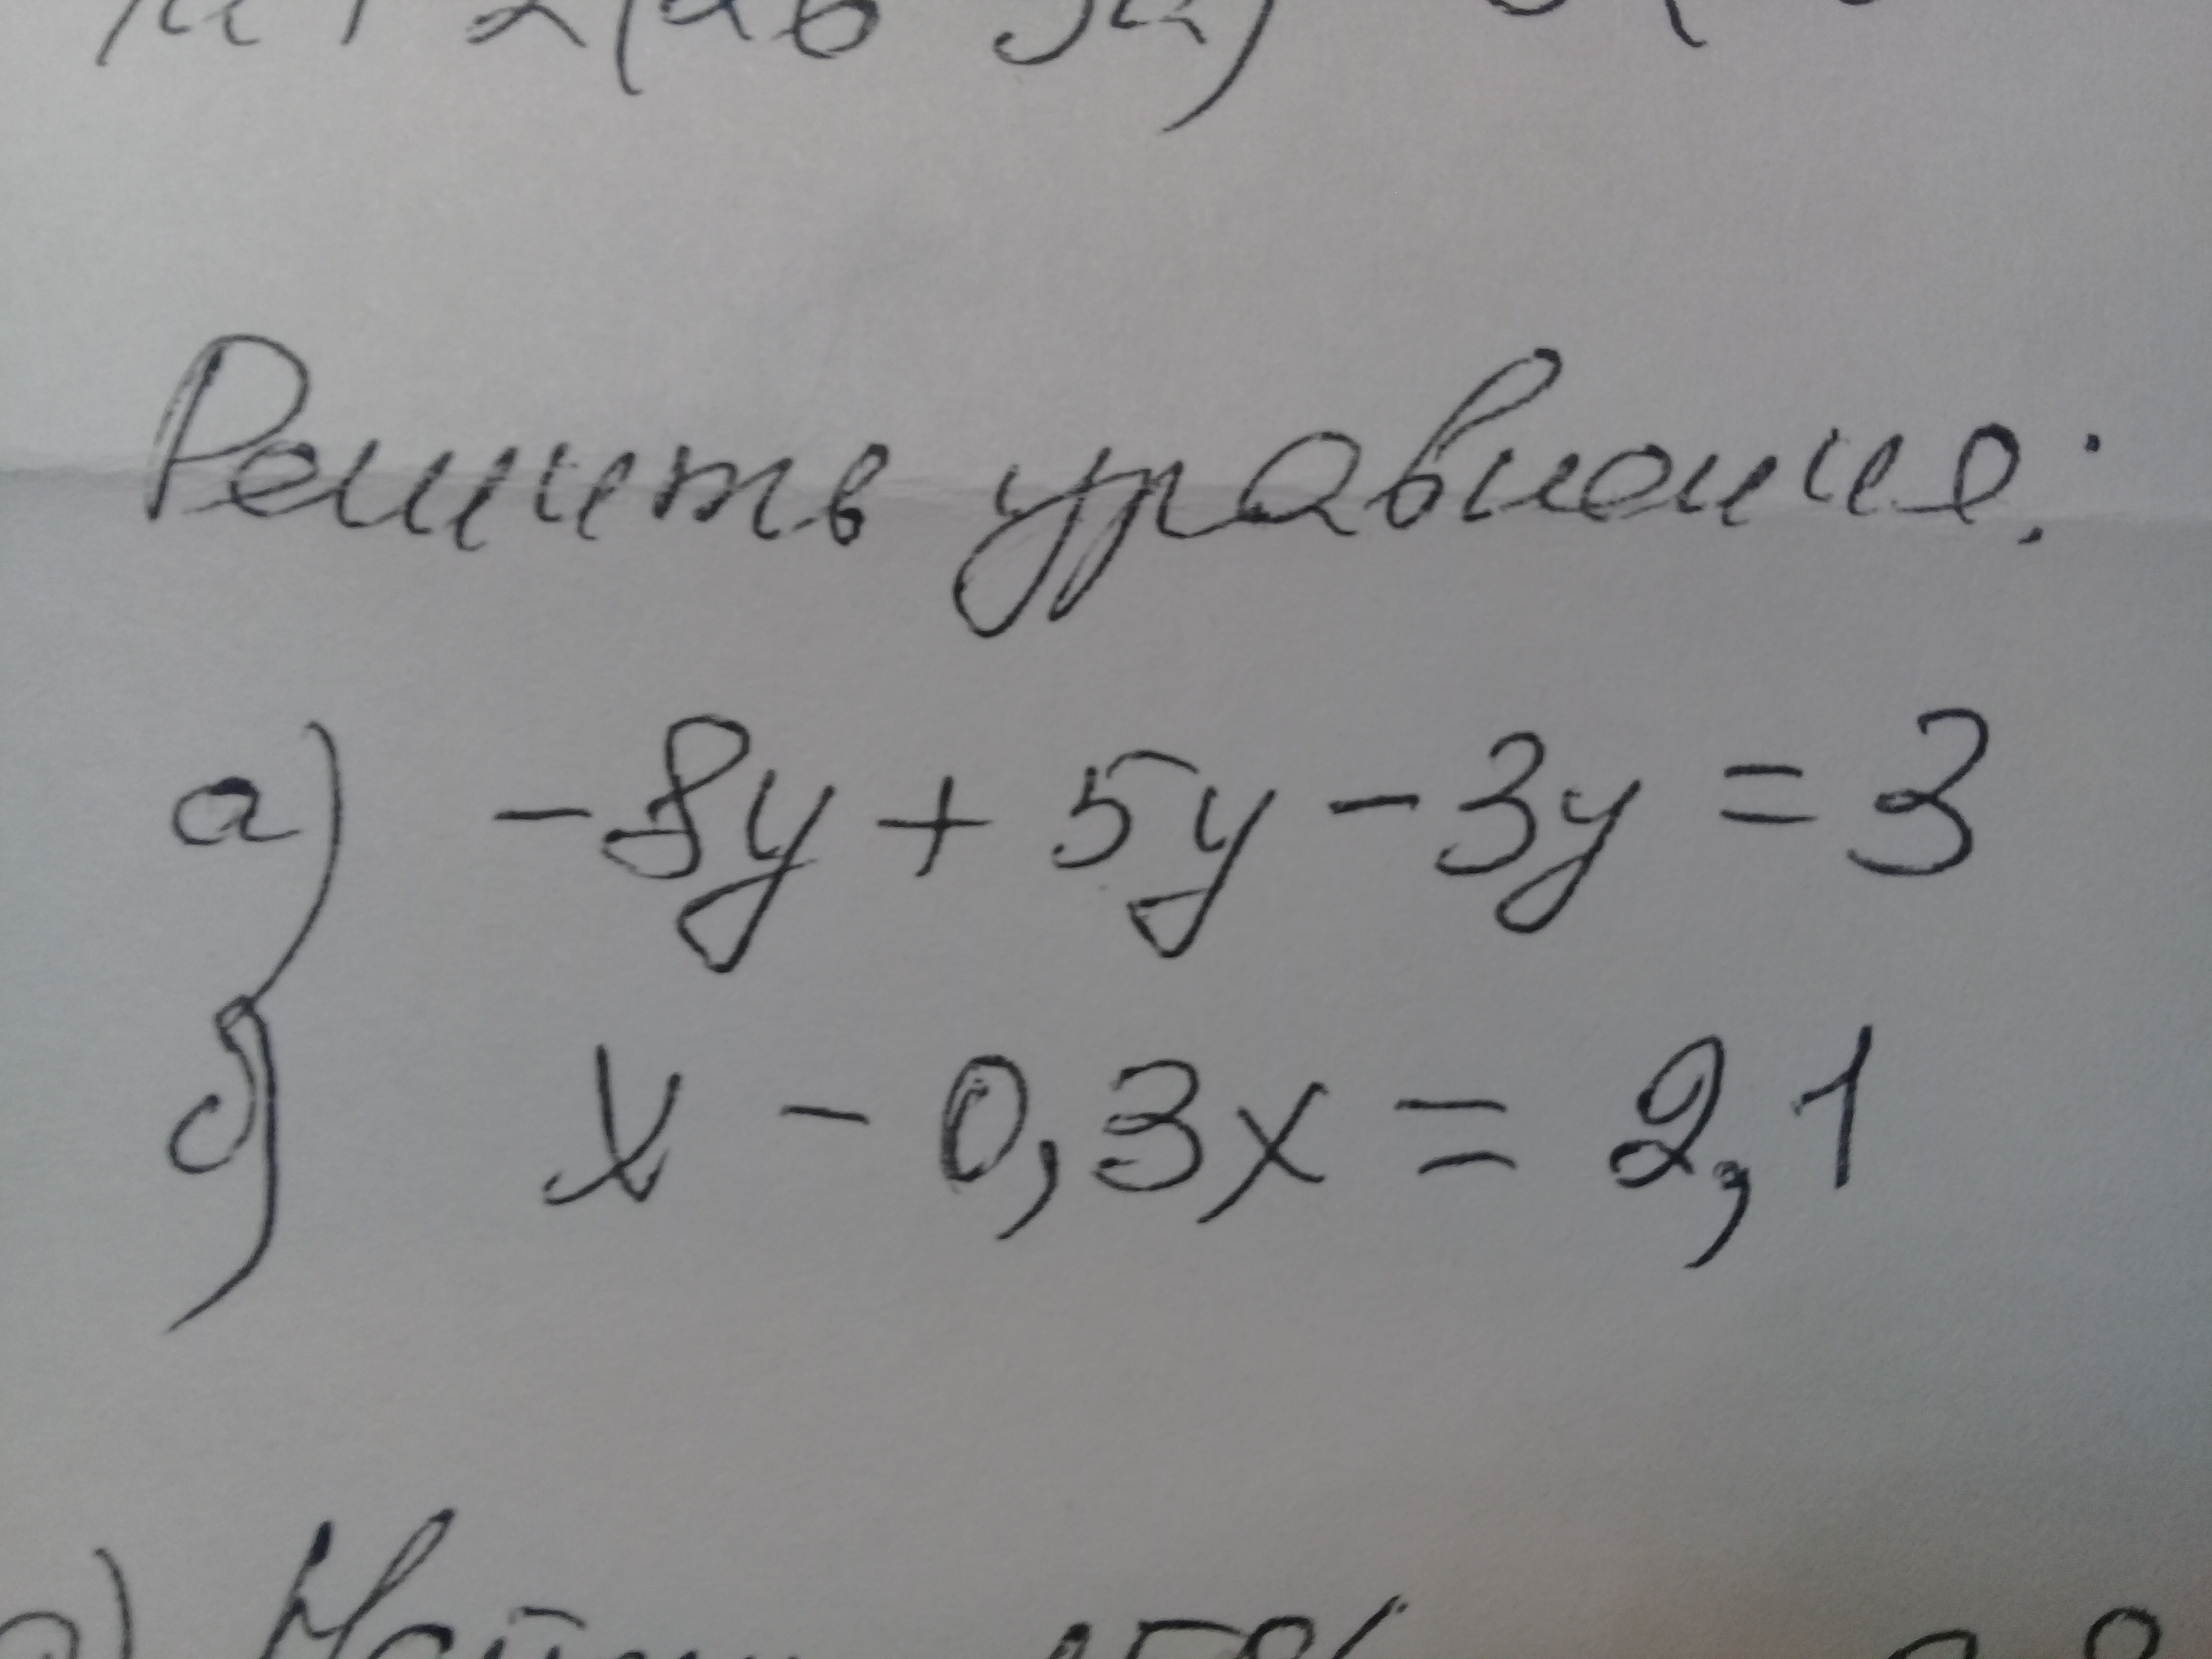 Решить уравнение:
а) -8y + 5y - 3y = 3
б) x - 0,3x = 2,1